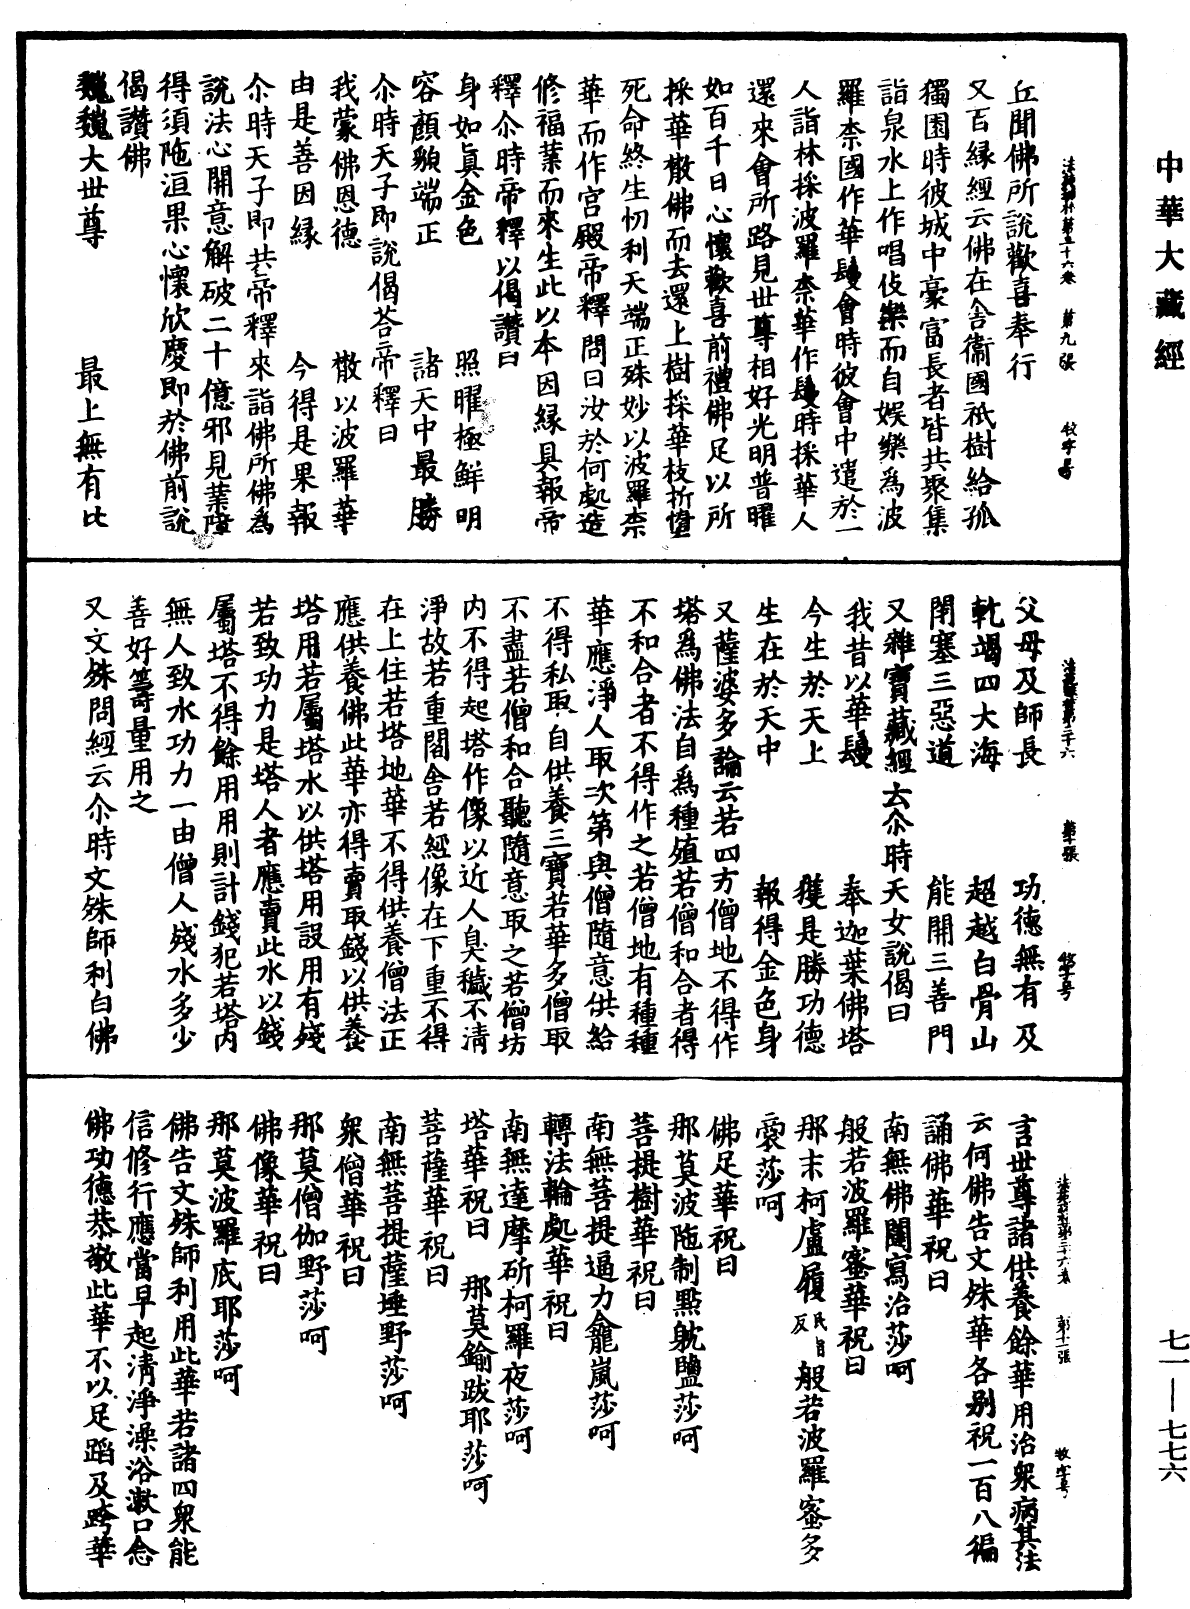 中華大藏經
丘聞佛所說歡喜奉行
又百緣經云佛在舍衞國祇樹給孤
獨園時彼城中豪富長者皆共聚集
詣泉水上作唱伎樂而自娛樂爲波
羅柰國作華鬘會時彼會中遣於一
人詣林採波羅柰華作鬘時採華人
還來會所路見世尊相好光明普曜
如百千日心懷歡喜前禮佛足以所
採華散佛而去還上樹採華枝折墮
死命終生忉利天端正殊妙以波羅柰
華而作宮殿帝釋問曰汝於何處造
修福業而來生此以本因緣具報帝
釋尒時帝釋以偈讚曰
身如眞金色　照曜極鮮明
容顏貌端正　諸天中最勝
尒時天子即說偈荅帝釋曰
我蒙佛恩德　散以波羅華
由是善因緣　今得是果報
尒時天子即共帝釋來詣佛所佛爲
說法心開意解破二十億邪見業障
得須陁洹果心懷欣慶即於佛前說
偈讚佛
巍巍大世尊　最上無有比
父母及師長　功德無有及
乾竭四大海　超越白骨山
閉塞三惡道　能開三善門
又雜寶藏經云尒時天女說偈曰
我昔以華鬘　奉迦葉佛塔
今生於天上　獲是勝功德
生在於天中　報得金色身
又薩婆多論云若四方僧地不得作
塔爲佛法自爲種殖若僧和合者得
不和合者不得作之若僧地有種種
華應淨人取次第與僧隨意供給
不得私取自供養三寶若華多僧取
不盡若僧和合聽隨意取之若僧坊
內不得起塔作像以近人臭穢不清
淨故若重閣舍若經像在下重不得
在上住若塔地華不得供養僧法正
應供養佛此華亦得賣取錢以供養
塔用若屬塔水以供塔用設用有殘
若致功力是塔人者應賣此水以錢
屬塔不得餘用用則計錢犯若塔內
無人致水功力一由僧人殘水多少
善好籌量用之
又文殊問經云尒時文殊師利白佛
言世尊諸供養餘華用治衆病其法
云何佛告文殊華各別祝一百八徧
誦佛華祝曰
南無佛闥寫治莎呵
般若波羅蜜華祝曰
那末柯盧履民旨反般若波羅蜜多
裔莎呵
佛足華祝曰
那莫波陁制點躭鹽莎呵
菩提樹華祝曰
南無菩提逼力龕嵐莎呵
轉法輪處華祝曰
南無達摩斫柯羅夜莎呵
塔華祝曰　那莫鍮跋耶莎呵
菩薩華祝曰
南無菩提薩埵野莎呵
衆僧華祝曰
那莫僧伽野莎呵
佛像華祝曰
那莫波羅底耶莎呵
佛告文殊師利用此華若諸四衆能
信修行應當早起清淨澡浴漱口念
佛功德恭敬此華不以足蹈及跨華
七一—七七六